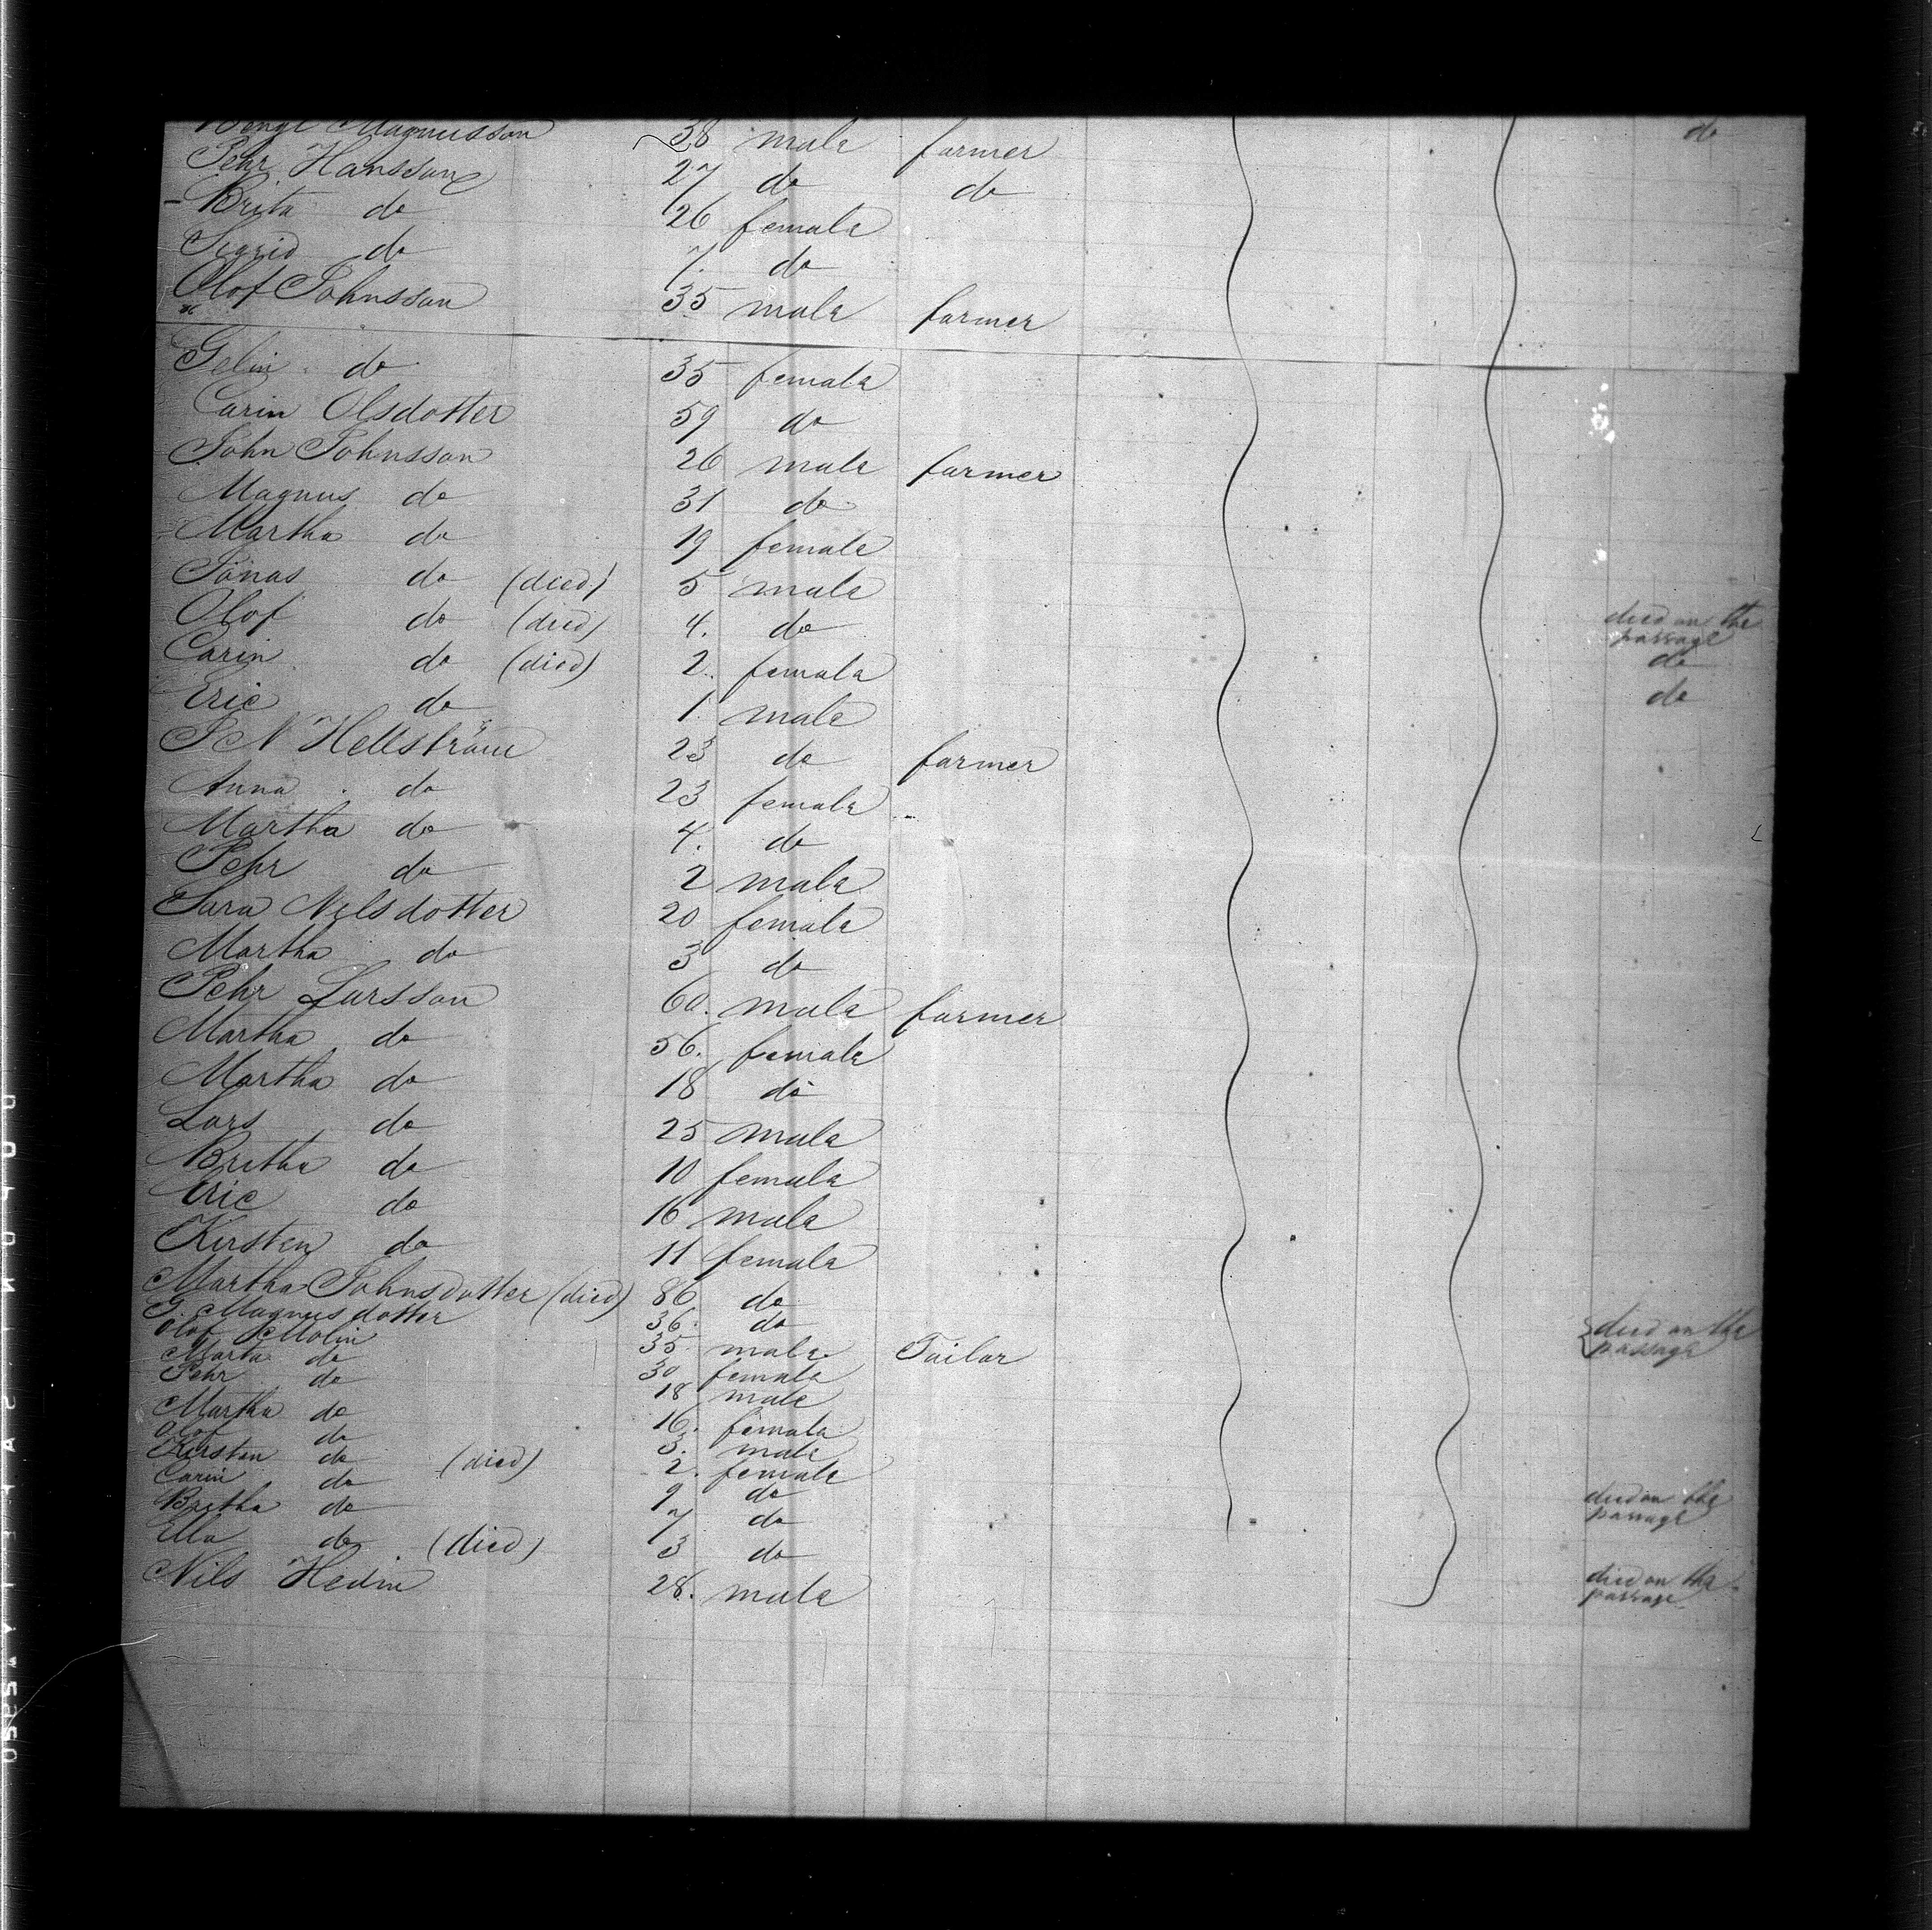 Bengt Magnusson 38 male farmer do
Pehr Hansson 27 do do
Brita do 26 female
Sigrid do 7. do
Olof Johnsson 35 male farmer
Gelin do 35 female
Carin Olsdotter 59 do
John Johnsson 26 male farmer
Magnus do 31 do
Martha do 19 female
Jonas do (died) 5 male
Olof do (died) 4. do died on the passage
Carin do (died) 2. female do
Eric do 1. male do
P N Hellström 23 do farmer
Anna do 23 female
Martha do 4. do
Pehr do 2 male
Sara Nilsdotter 20 female
Martha do 3 do
Pehr Larsson 60. male farmer
Martha do 56. female
Martha do 18 do
Lars do 25 male
Bretha do 10 female
Eric do 16 male
Kirsten do 11 female
Martha Johnsdotter (died) 86 do
G. Magnusdotter 36. do died on the passage
Olof Molin 35 male Tailor
Marta do 30 female
Pehr do 18 male
Martha do 16. female
Olof do 3. male
Kirsten do (died) 2. female
Carin do 9 do died on the passage
Bretha do 7 do
Ella do (died) 3 do
Nils Hedin 28. male died on the passage